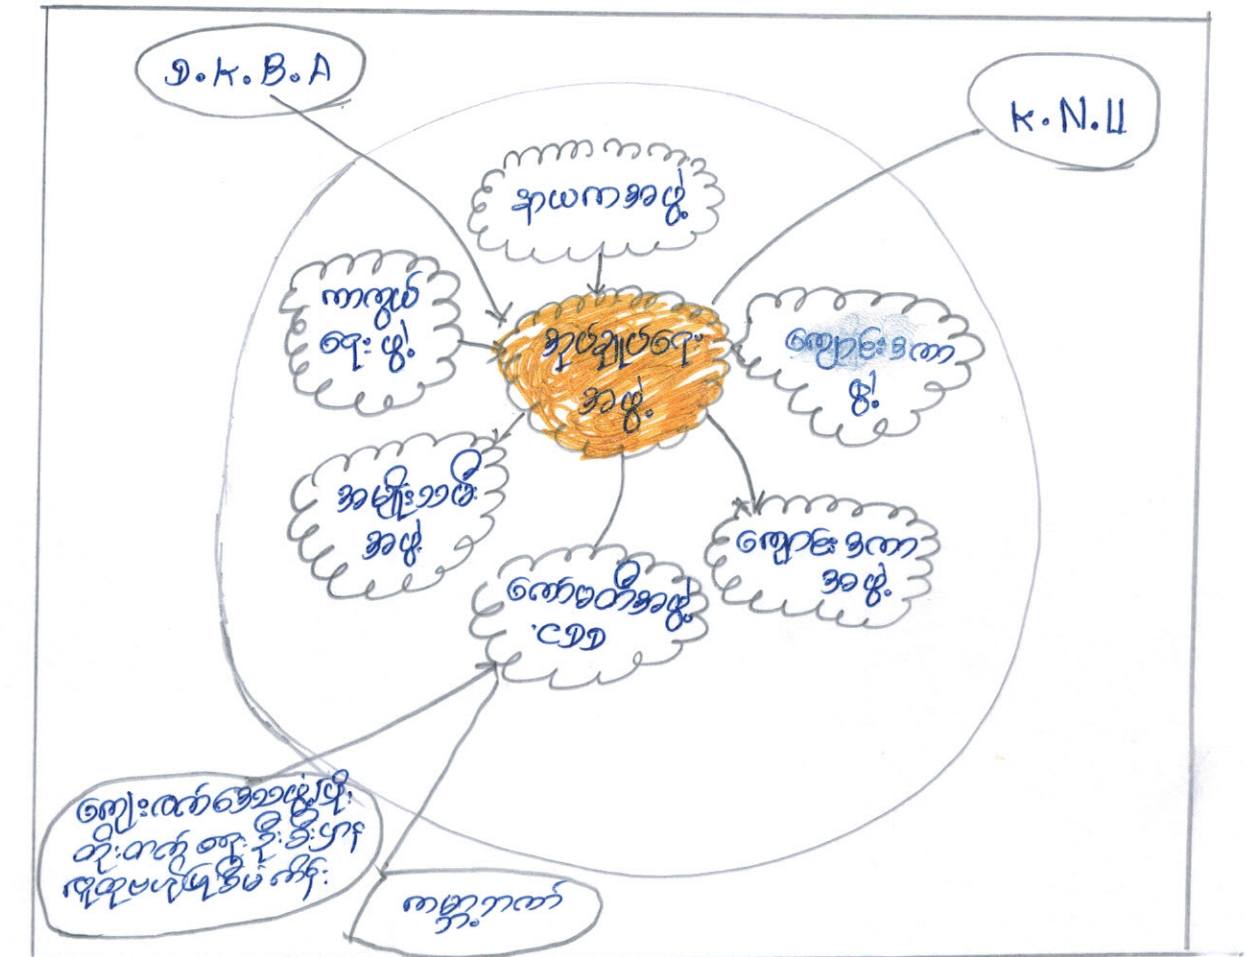 D.K.B.A
K.N.U
နာယကအဖွဲ့
ကာကွယ်
ရေးဖွဲ့
အုပ်ချုပ်ရေး
အဖွဲ့
ကျောင်းဒကာ
ဖွဲ့
အမျိုးသမီး
အဖွဲ့
ကျောင်းဒကာ
အဖွဲ့
ကော်မတီအဖွဲ့
CDD
ကျေးလက်ဒေသဖွံ့ဖြိုး
တိုးတက်ရေးဦးစီးဌာန
လူထုဗဟိုပြုစီမံကိန်း
ကမ္ဘာ့ဘဏ်